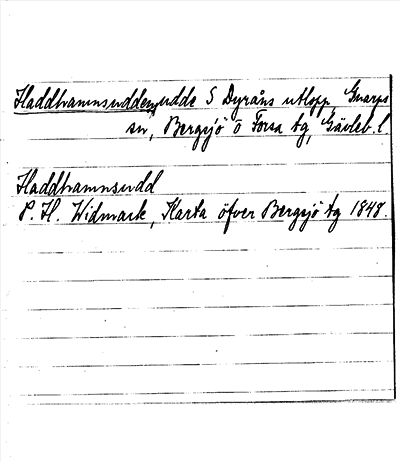 Haddhamnsudden, udde S Dyråns utlopp Gnarps
sn, Bergsjö o Forsa tg, Gävleb. l
Haddhamnsudd
P. H. Widmark, Karta öfver Bergsjö tg 1848.